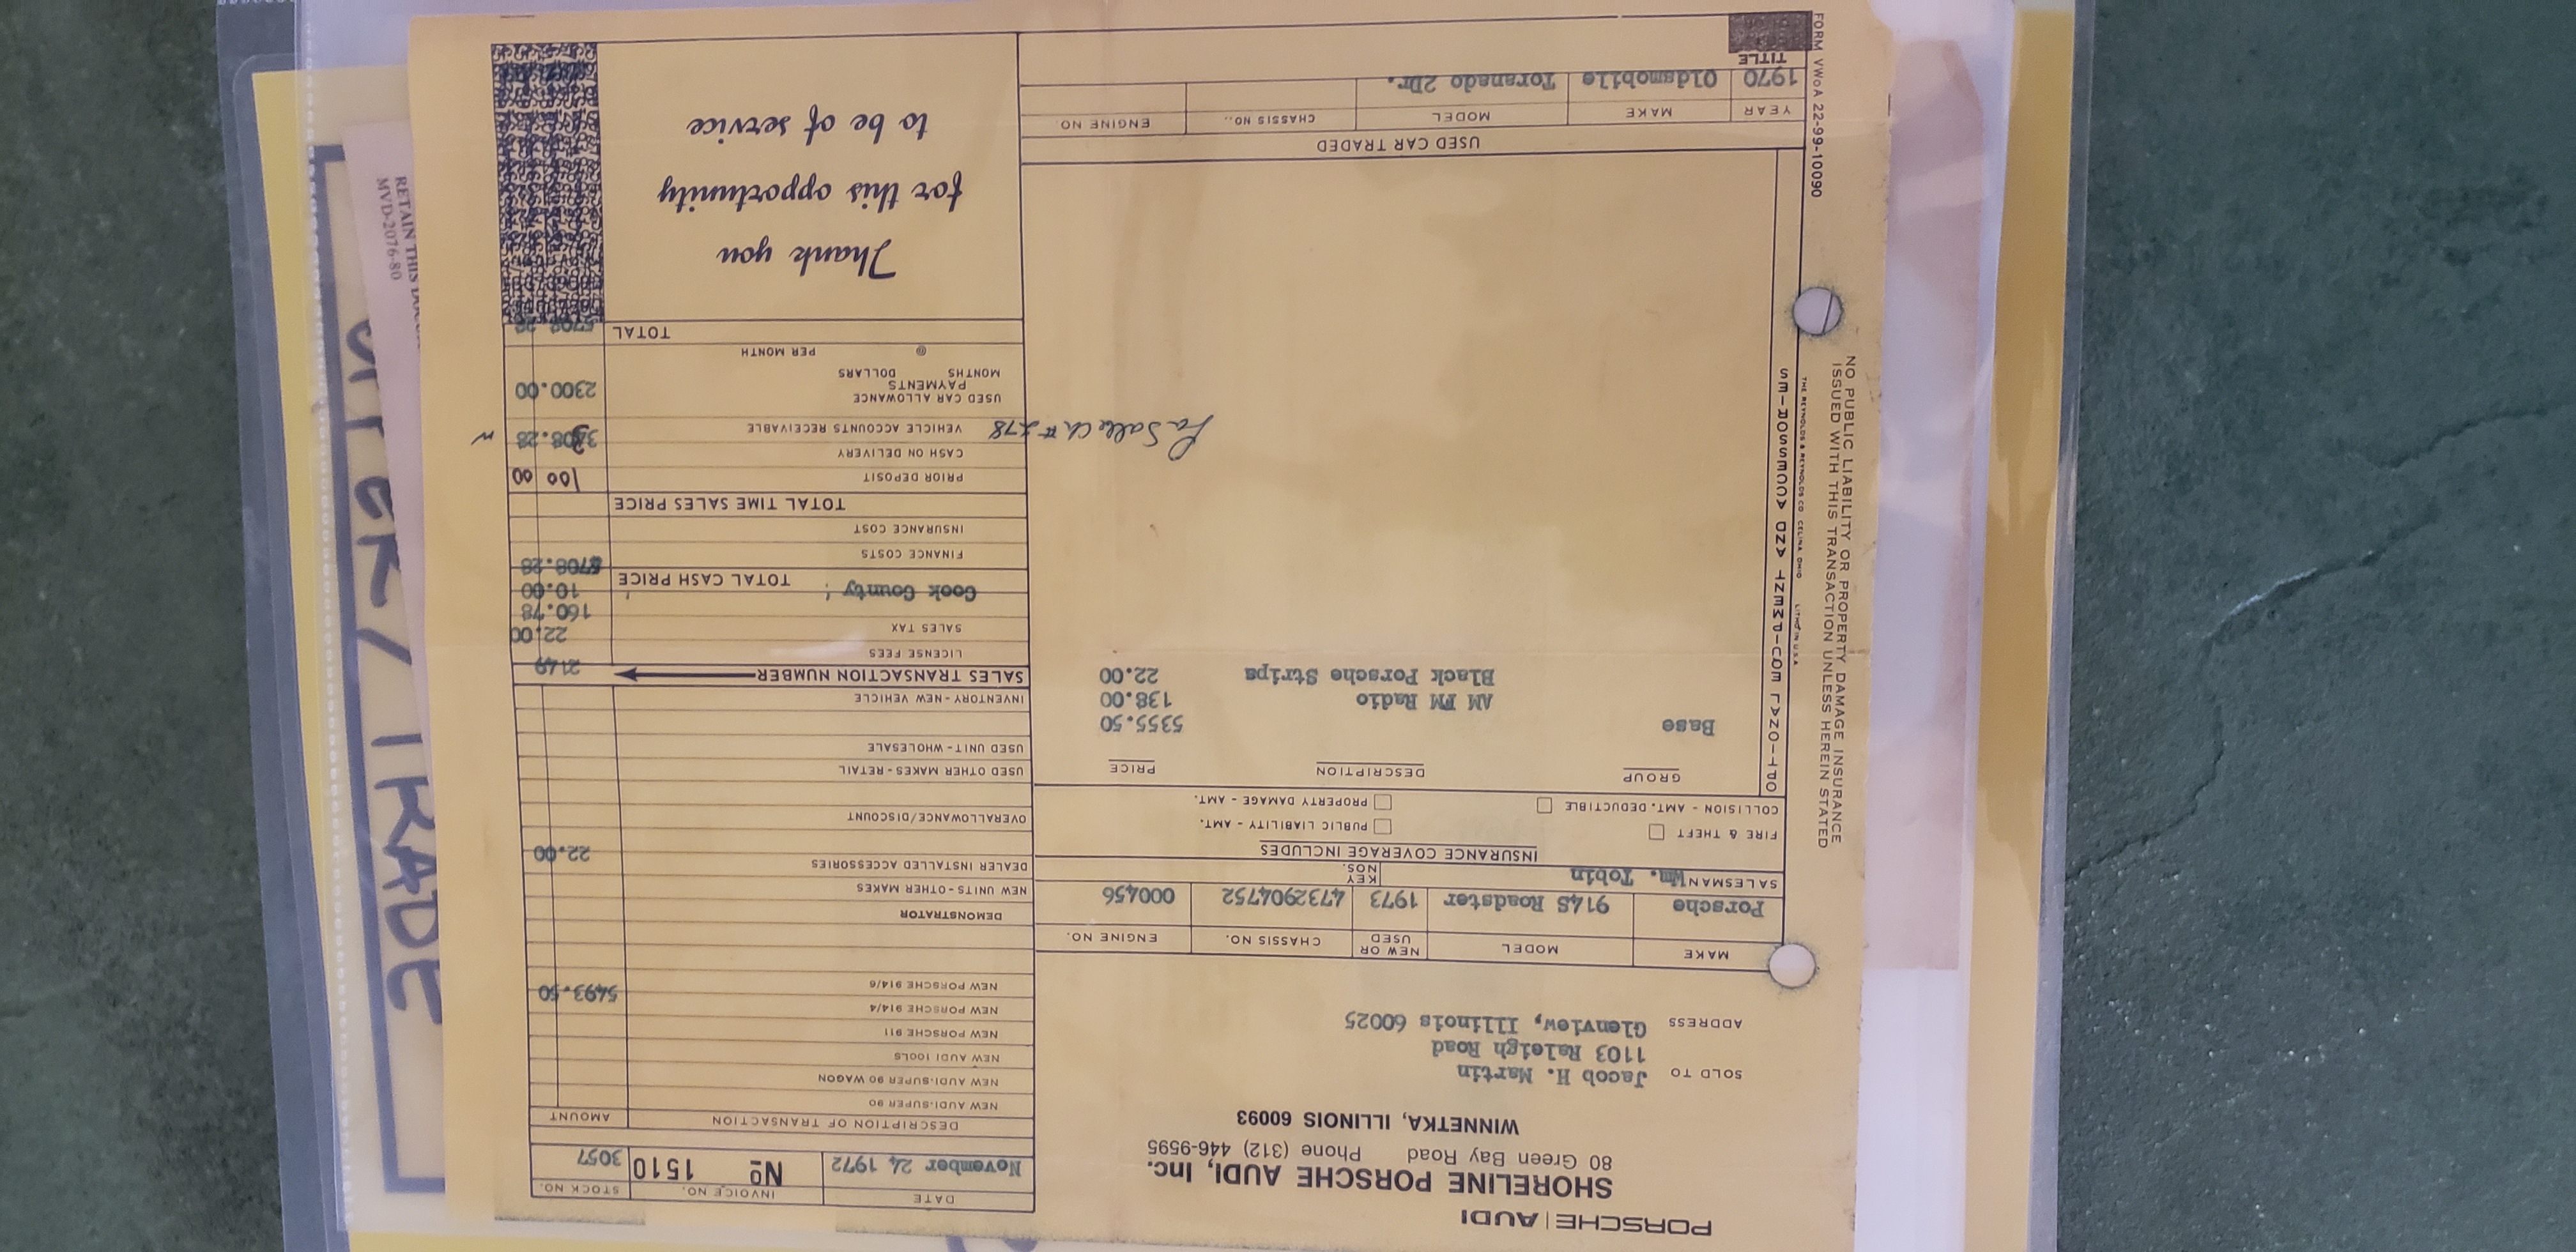 PORSCHE | AUDI
SHORELINE PORSCHE AUDI, Inc.
80 Green Bay Road Phone (312) 446-9595
WINNETKA, ILLINOIS 60093
SOLD TO Jacob H. Martin
1103 Raleigh Road
ADDRESS Glenview, Illinois 60025
DATE INVOICE NO. STOCK NO.
November 24 1972 No 1510 3057
MAKE MODEL NEW OR USED CHASSIS NO. ENGINE NO.
Porsche 914S Roadster 1973 4732904752 000456
SALESMAN Wm. Tobin KEY NOS.
INSURANCE COVERAGE INCLUDES
FIRE & THEFT PUBLIC LIABILITY - AMT.
COLLISION - AMT. DEDUCTIBLE PROPERTY DAMAGE - AMT.
GROUP DESCRIPTION PRICE
Base 5355.50
AM FM Radio 138.00
Black Porsche Strips 22.00
OPTIONAL EQUIPMENT AND ACCESSORIES
LaSalle Ch # 278
USED CAR TRADED
YEAR MAKE MODEL CHASSIS NO. ENGINE NO
1970 Oldsmobile Toranado 2Dr.
TITLE
DESCRIPTION OF TRANSACTION AMOUNT
NEW AUDI-SUPER 90
NEW AUDI-SUPER 90 WAGON
NEW AUDI 100LS
NEW PORSCHE 911
NEW PORSCHE 914/4 5493.50
NEW PORSCHE 914/6
DEMONSTRATOR
NEW UNITS - OTHER MAKES
DEALER INSTALLED ACCESSORIES 22.00
OVERALLOWANCE/DISCOUNT
USED OTHER MAKES - RETAIL
USED UNIT - WHOLESALE
INVENTORY - NEW VEHICLE
SALES TRANSACTION NUMBER 2149
LICENSE FEES 22.00
SALES TAX 160.78
Cook County 10.00
TOTAL CASH PRICE 5708.28
FINANCE COSTS
INSURANCE COST
TOTAL TIME SALES PRICE
PRIOR DEPOSIT 100 00
CASH ON DELIVERY
VEHICLE ACCOUNTS RECEIVABLE 3308.28
USED CAR ALLOWANCE 2300.00
PAYMENTS
MONTHS DOLLARS
@ PER MONTH
TOTAL 5708 28
Thank you
for this opportunity
to be of service
THE REYNOLDS & REYNOLDS CO. CELINA, OHIO LITHO IN U.S.A.
NO PUBLIC LIABILITY OR PROPERTY DAMAGE INSURANCE
ISSUED WITH THIS TRANSACTION UNLESS HEREIN STATED
FORM VWoA 22-99-10090
RETAIN THIS
MVD-2076-80
/ TRADE